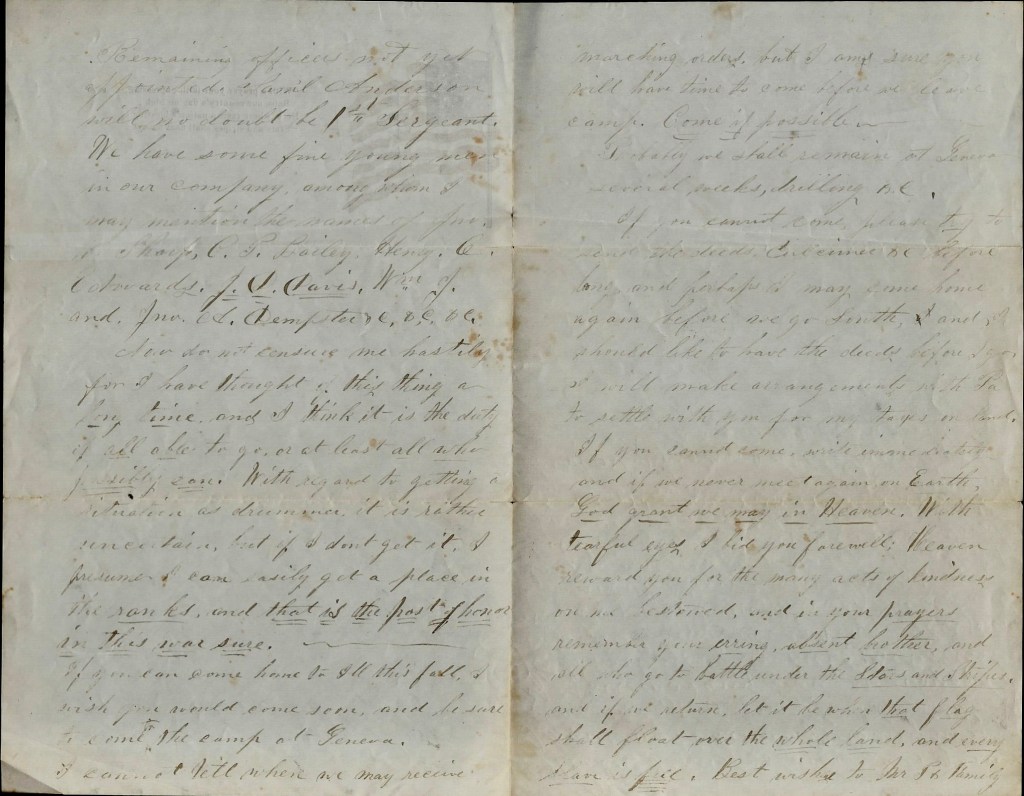 Remaining offices not yet
appointed. Saml Anderson
will no doubt be 1st Sergeant.
We have some fine young men
in our company, among whom I
may mention the names of Jno.
Sharp, C. P. Bailey, Henry C.
Edwards, J. S. Davis, Wm J.
and Jno. A. Dempster &c, &c, &c.
Now do not censure me hastily
for I have thought of this thing a
long time, and I think it is the duty
of all able to go, or at least all who
possibly can. With regard to getting a
situation as drummer, it is rather
uncertain, but if I dont get it, I
presume I can easily get a place in
the ranks, and that is the post of honor
in this war sure.
If you can come home to Ill this fall, I
wish you would come soon, and be sure
to come to the camp at Geneva.
I cannot tell when we may receive
marching orders, but I am sure you
will have time to come before we leave
camp. Come if possible.
Probably we shall remain at Geneva
several weeks, drilling &c.
If you cannot come, please try to
send the deeds &c before
long, and perhaps I may come home
again before we go South, and I
should like to have the deeds before I go.
I will make arrangements with Pa
to settle with you for my taxes on land.
If you cannot come, write immediately
and if we never meet again on Earth,
God grant we may in Heaven. With
tearful eyes I bid you farewell; Heaven
reward you for the many acts of kindness
on me bestowed, and in your prayers
remember your erring, absent brother, and
all who go to battle under the Stars and Stripes.
and if we return, let it be when that flag
shall float over the whole land, and every
slave is free. Best wishes to family